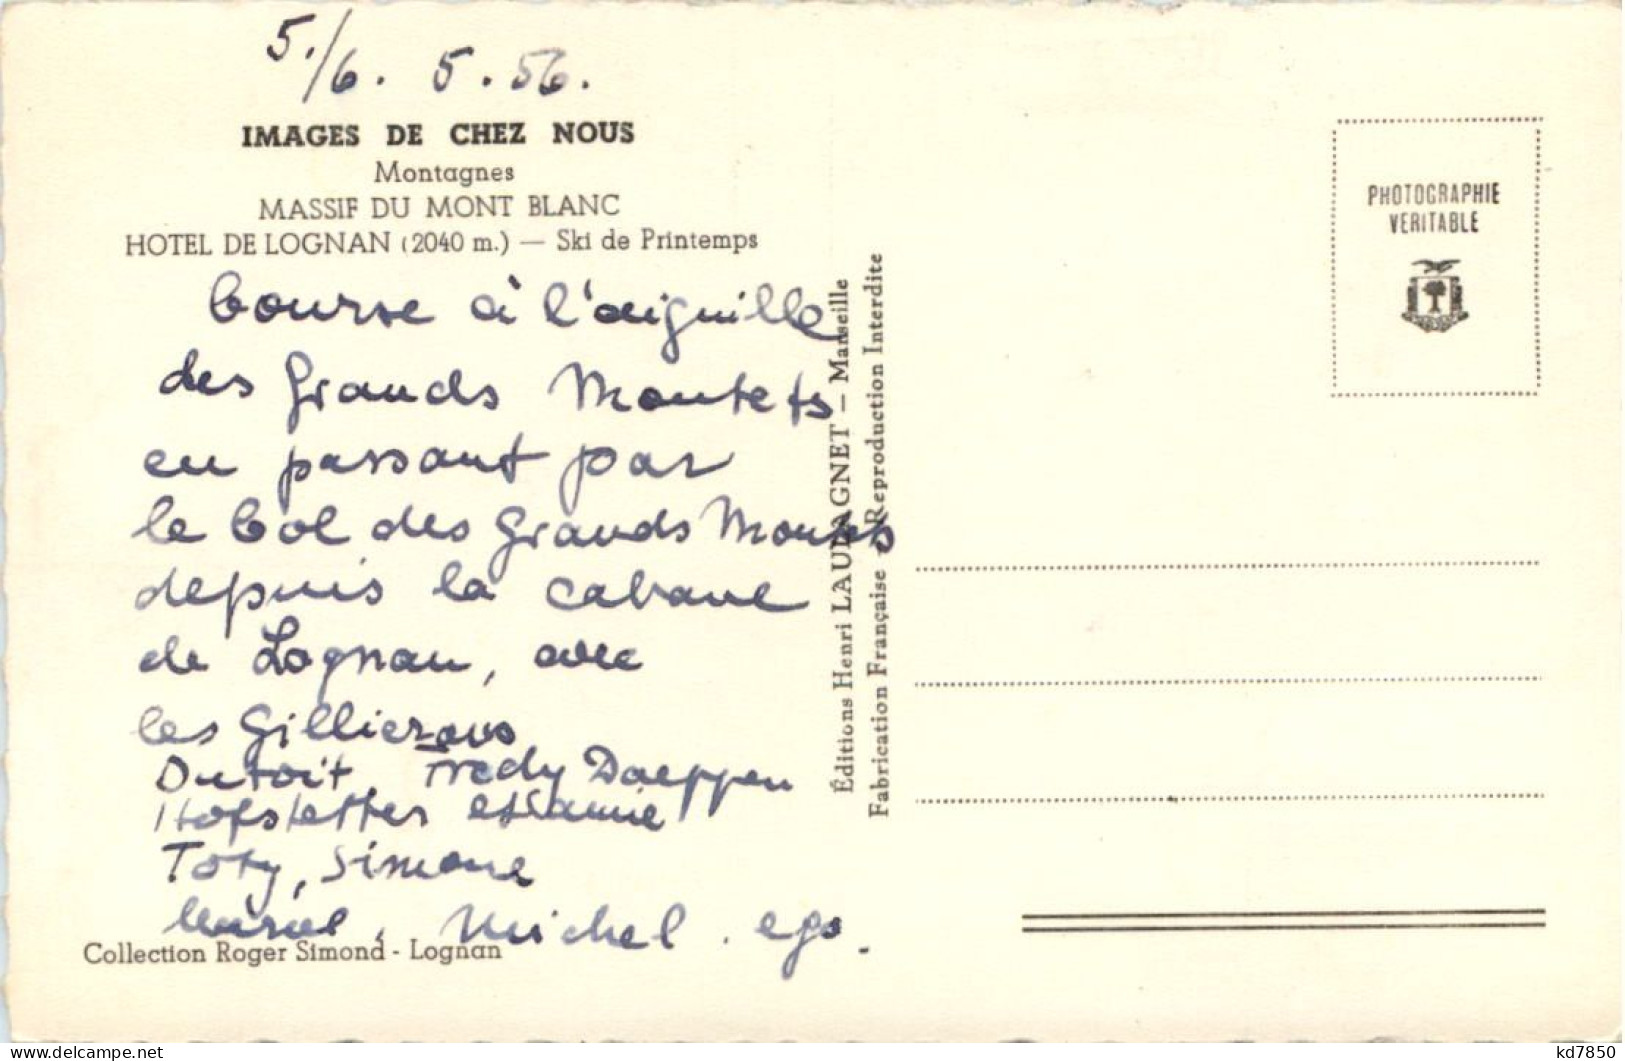 5./6. 5. 56.
IMAGES DE CHEZ NOUS
Montagnes
MASSIF DU MONT BLANC
HOTEL DE LOGNAN (2040 m.) — Ski de Printemps
Course à l'aiguille
des Grands Montets
en passant par
le Col des Grands Montets
depuis la cabane
de Lognan, avec
les Gillierons
Dutoit, Fredy Daeppen
Hofstetter et
Toty, Simone
Muriel, Michel. ego.
Collection Roger Simond - Lognan
Éditions Henri LAUDAGNET — Marseille
Fabrication Française Reproduction Interdite
PHOTOGRAPHIE
VERITABLE
kd7850